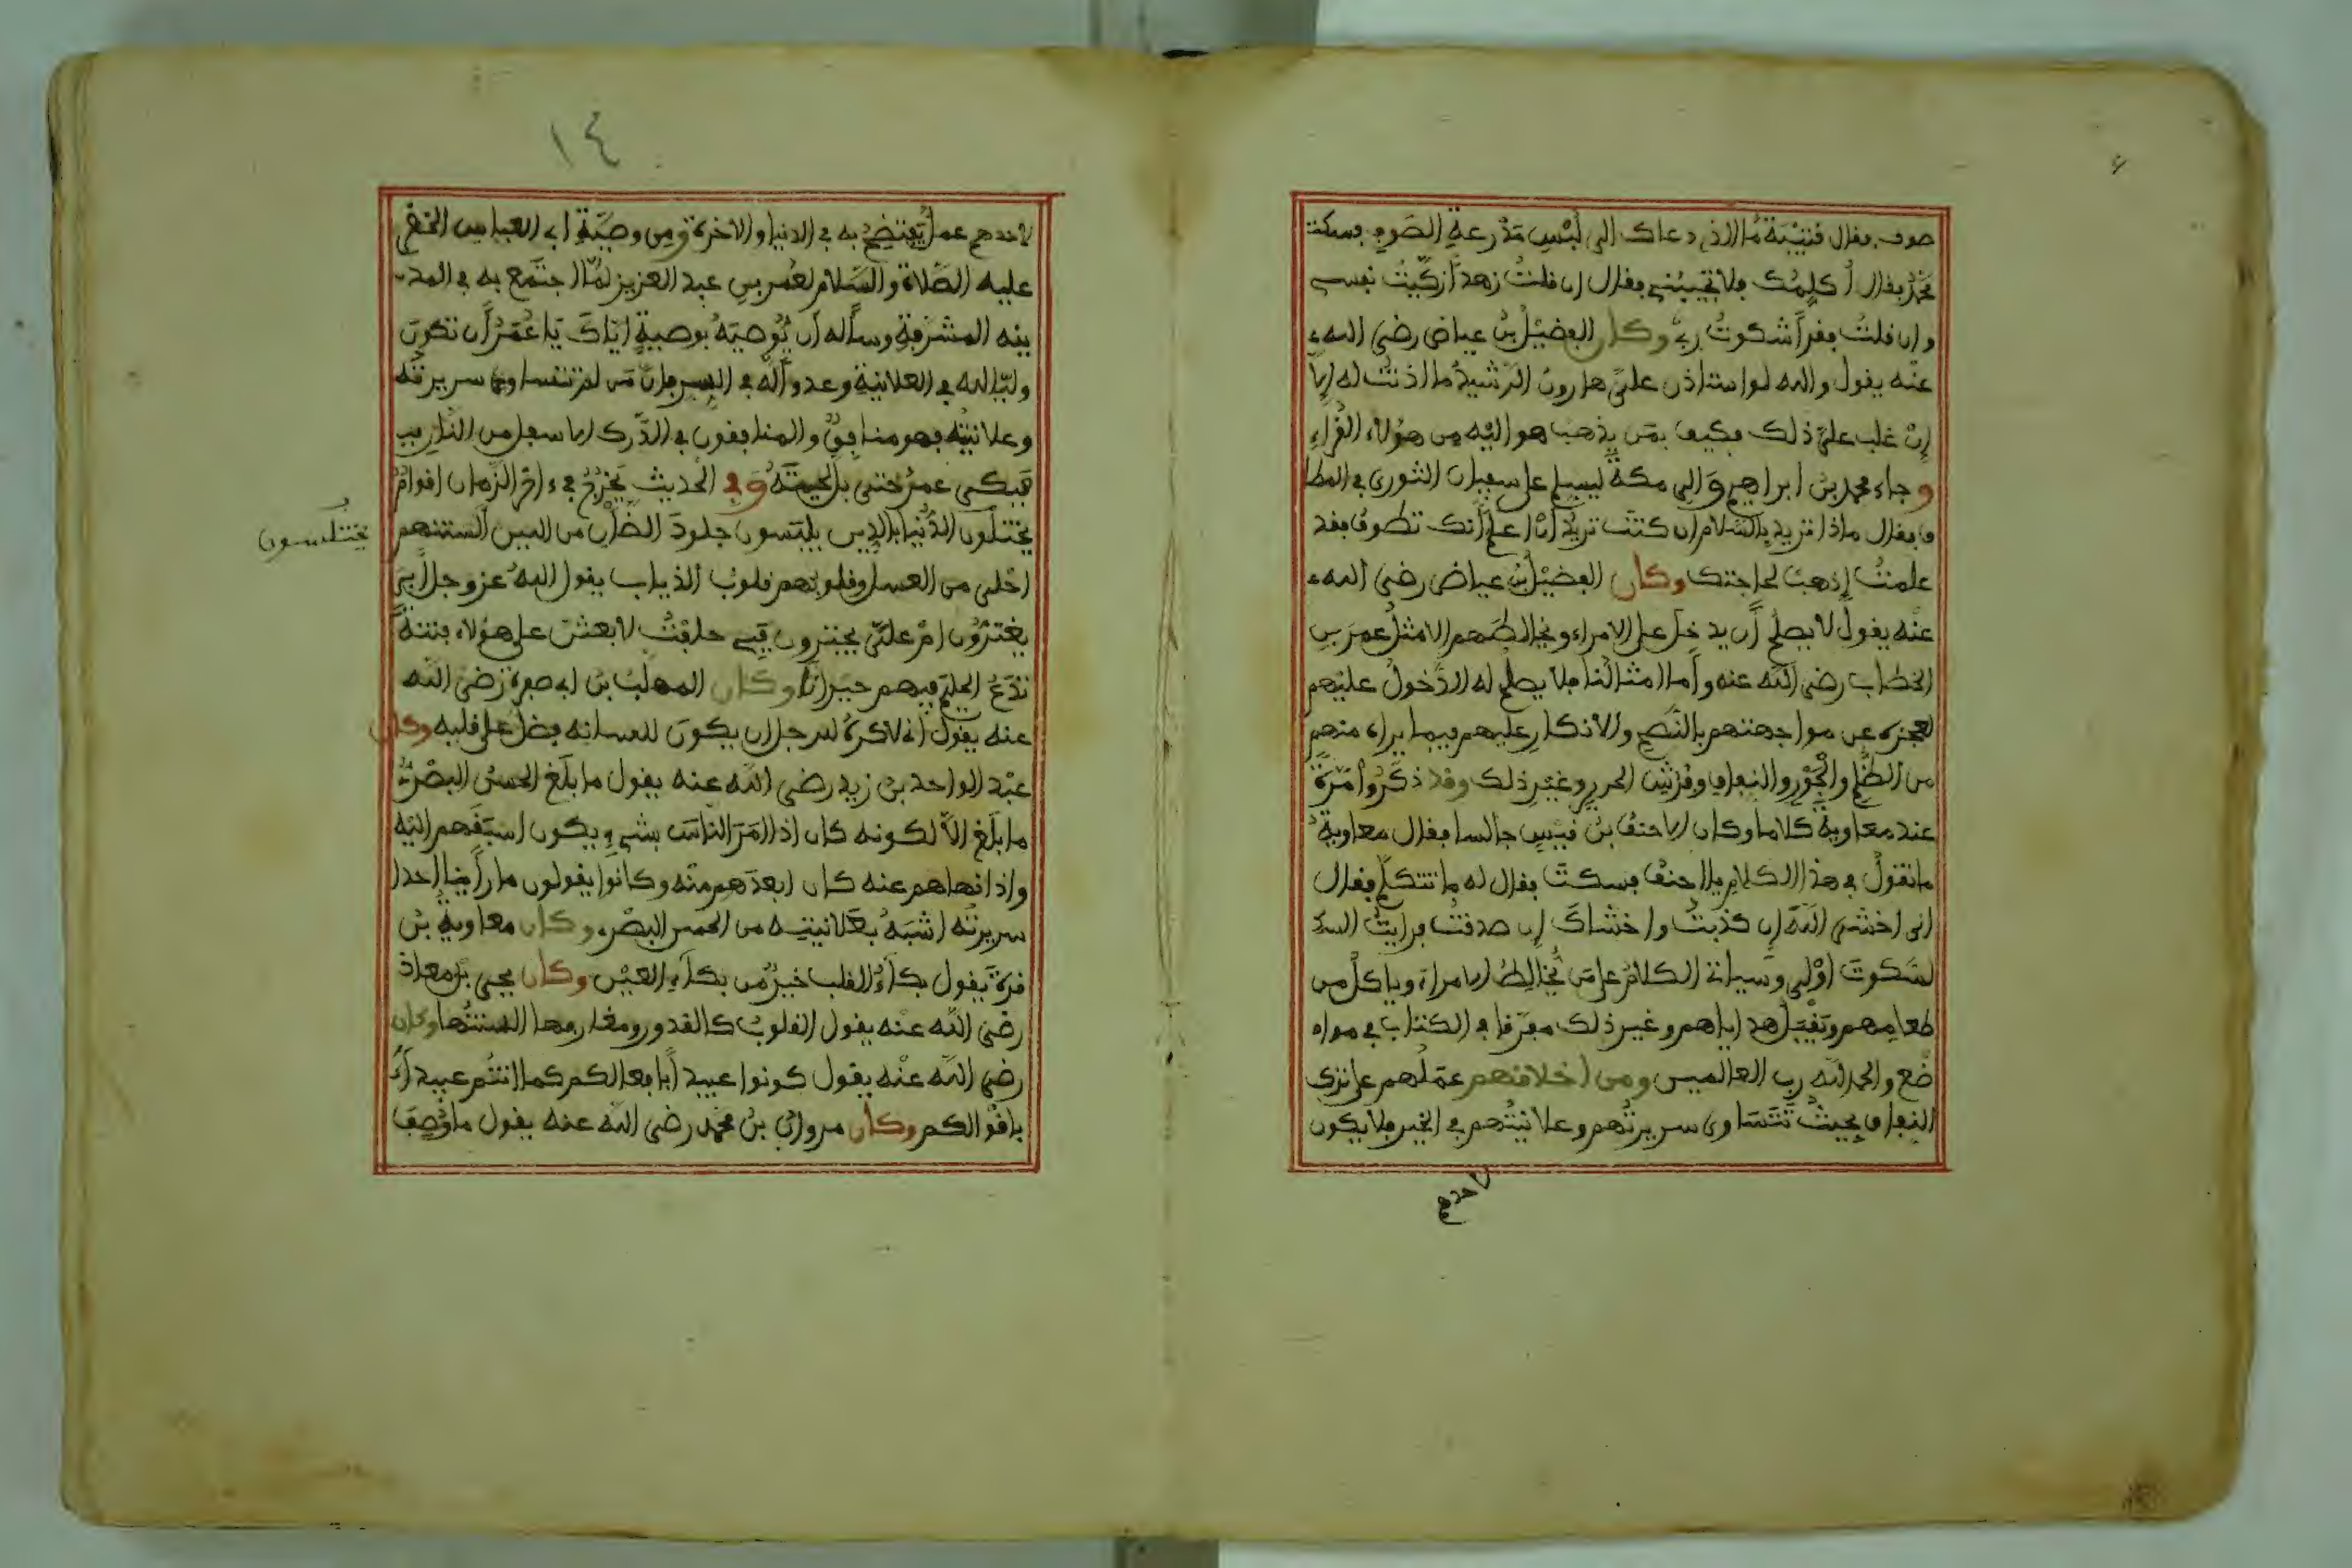 صوف. فقال قتيبة ما الذي دعاك الى لبْسِ مدْرعةِ الصّوفِ فسكت
محمدٌ فقال أُكلِّمُك فلا تجيبُني فقال ان قلتُ زهداً زكّيْتُ نفسي
وان قلتُ فقراً شكوتُ ربّي وكان الفضيْلُ بنُ عياض رضي الله ء
عنْه يقول والله لو استاذن عليّ هارونُ الرّشيدُ ما اذنْتُ له إلا
إنْ غلب عليّ ذلك فكيف بمَن يذهب هو اليْه مِن هؤلاء القُراءِ
وجاء محمد بن ابراهيم والي مكة ليسلم على سفيان الثوري في المطا
ف فقال ماذا تريد بالسّلام ان كنتَ تريدُ أن أعلم أنك تطوف فقد
علمتُ إذهبْ لحاجتك وكان الفضيْلُ بنُ عياض رضي الله ء
عنْه يقول لا يصلح أن يدخل على الامراء ويخالطهم الا مثل عمرَ بن
الخطاب رضي الله عنه وأما امثالنا فلا يصلح له الدّخول عليْهم
لعجزه عن مواجهتهم بالنّصح والانكار عليهم فيما يراه منهم
من الظّلم والجَوْر والنفاق وفُرُش الحرير وغيْر ذلك وقد ذكَرُوا مَرّةً
عند معاوية كلاما وكان الاحنفُ بنُ قيْسٍ جالسا فقال معاوية
ما تقولُ في هذا الكلام يا احنفُ فسكتَ فقال له ما تتكلّم فقال
انى اخشى اللّهَ إن كذبْتُ واخشاكَ إن صدقتُ فرايتُ السّ
لسّكوتَ اوْلى وسياتي الكلامُ على مَن يُخالِطُ الامراء وياكلُ من
طعامِهم ويَقْبَل هداياهم وغير ذلك مفرّقا في الكتاب في مواه
ضع والحمد لله رب العالمين ومن اخلاقهم عمَلُهم على ترك
النِفاق بحيثُ تتَسَاوى سريرتُهم وعلانيّتُهم في الخير فلا يكون
لاحدهم
١٤
لاحدهم عملٌ يُفتضحُ به في الدنيا والاخرة ومن وصيّةِ ابى العباس الخضر
عليه الصّلاة والسّلام لعُمر بن عبد العزيز لمّا اجتمع به في المد
ينه المشرّفةِ وسأله أن يُوصيَهُ بوصيةٍ إيّاكَ يا عُمَرُ أن تكونَ
وليّا لله في العلانية وعدوّا له في السر فإنّ مَن لم تتساوى سريرته
وعلانيتُه فهو منافقٌ والمنافقون في الدّرك الاسفل من النّار
فبكى عمرُ حتى بلّ لحيتَهُ وفي الحديث يخرُجُ في ءاخر الزّمان اقوامٌ
يختلون الدُّنيا بالدِين يلبَسون جلودَ الضّأن من اللين ألسنتهم
يختلسون
احْلى من العسل وقلوبُهم قلوبُ الذياب يقول اللهُ عز وجل أبي
يغترّون ام عليّ يجترون فبي حلفْتُ لابعثن على هؤلاء فتنةً
تدَعُ الحليمَ فيهم حيرانا وكان المهلّبُ بن ابي صفرة رَضى الله
عنه يقول اني لاكرهُ للرجل ان يكونَ للسانه فضل على قلبه وكان
عبْد الواحد بن زيد رضي الله عنه يقول ما بلَغ الحسنُ البصْريّ
ما بلَغ إلاّ لكونه كان اذا امَرَ الناسَ بشيءٍ يكون اسبَقَهم اليْه
واذا نهاهم عنه كان ابعدَهم منْه وكانُوا يقولون ما رأينا أحدا
سريرتُه اشبَهُ بعَلانيتِه من الحسن البصْري وكان معاوية بْن
قرةَ يقول بكاءُ القلب خيرٌ من بكاءِ العيْن وكان يحيى بن معاذ
رضي الله عنْه يقول القلوبُ كالقدور ومغارفها السنتُها وكان
رضي الله عنْه يقول كونوا عبيداً بافعالكم كما انتُم عبيدٌ
باقوالكم وكان مروانُ بن محمد رضى الله عنه يقول ما وُصِفَ